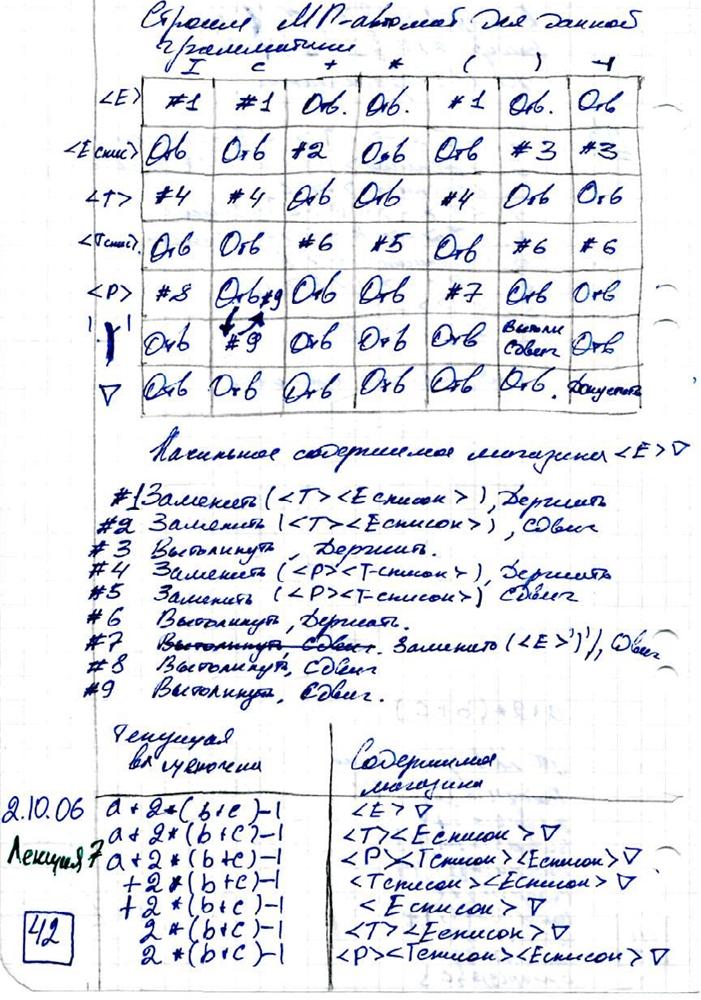 Строим МП-автомат для данной
грамматики
I c + * ( ) ⊣
<E> #1 #1 Отв. Отв. #1 Отв. Отв
<Eспис> Отв Отв #2 Отв Отв #3 #3
<T> #4 #4 Отв Отв #4 Отв Отв
<Tспис>. Отв Отв #6 #5 Отв #6 #6
<P> #8 Отв #9 Отв Отв #7 Отв Отв
')' Отв #9 Отв Отв Отв Вытолк Сдвиг Отв
▽ Отв Отв Отв Отв Отв Отв. Допустить
Начальное содержимое магазина <E>▽
#1 Заменить (<T><Eсписок>), Держать
#2 Заменить (<T><Eсписок>), Сдвиг
#3 Вытолкнуть, Держать.
#4 Заменить (<P><T-список>), Держать
#5 Заменить (<P><T-список>) Сдвиг
#6 Вытолкнуть, Держать.
#7 Вытолкнуть, Сдвиг. Заменить (<E>')'), Сдвиг
#8 Вытолкнуть, Сдвиг
#9 Вытолкнуть, Сдвиг.
Текущая
вх цепочка
Содержимое
магазина
2.10.06
Лекция 7
42
a+2*(b+c)⊣ <E>▽
a+2*(b+c)⊣ <T><Eсписок>▽
a+2*(b+c)⊣ <P><Tсписок><Eсписок>▽
+2*(b+c)⊣ <Tсписок><Eсписок>▽
+2*(b+c)⊣ <Eсписок>▽
2*(b+c)⊣ <T><Eсписок>▽
2*(b+c)⊣ <P><Tсписок><Eсписок>▽